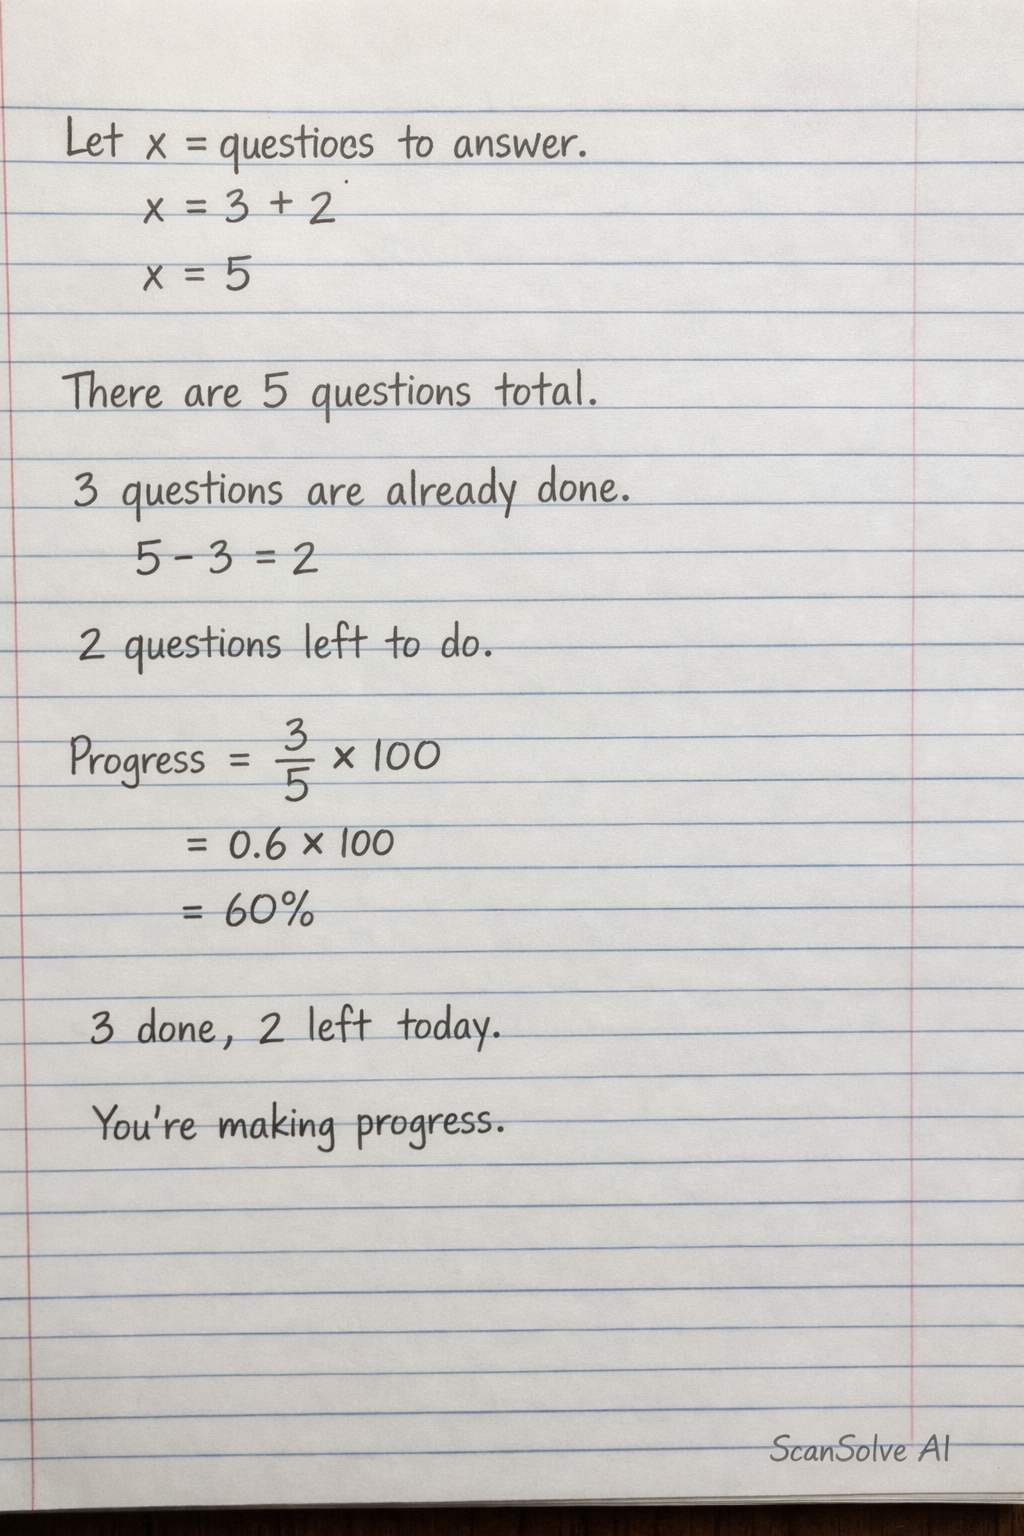 Let x = questions to answer.
x = 3 + 2
x = 5
There are 5 questions total.
3 questions are already done.
5 - 3 = 2
2 questions left to do.
Progress = 3/5 × 100
= 0.6 × 100
= 60%
3 done, 2 left today.
You're making progress.
ScanSolve AI